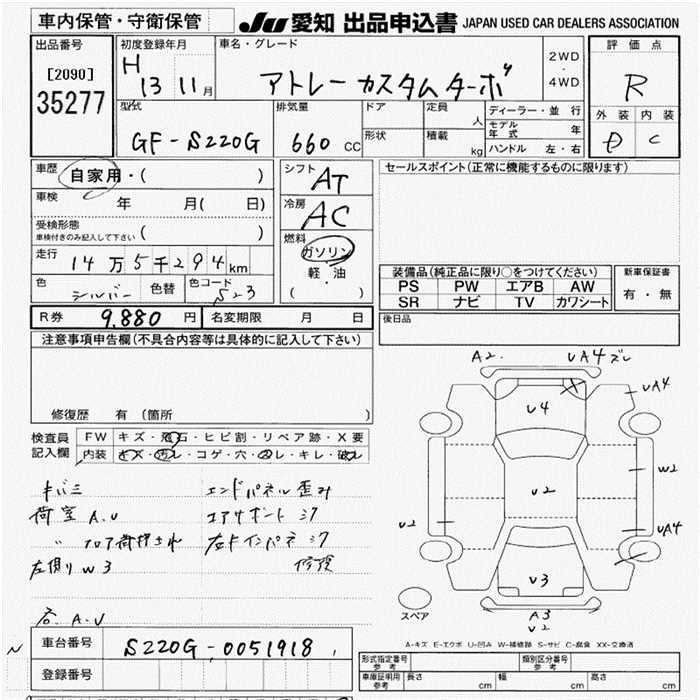 車内保管・守衛保管
JU 愛知 出品申込書 JAPAN USED CAR DEALERS ASSOCIATION
出品番号
[2090]
35277
初度登録年月
H 13 11月
車名・グレード
アトレーカスタムターボ
2WD
・
4WD
評価点
R
外装 内装
D C
型式
GF-S220G
排気量
660 CC
ドア
定員
人
形状
積載
kg
ディーラー・並行
モデル年式 年
ハンドル 左・右
車歴
自家用・( )
車検
年 月( 日)
受検形態
車検付きのみ記入して下さい ( )
走行
14万5千294km
色
シルバー
色替
色コード
S23
シフト
AT
冷房
AC
燃料
ガソリン
軽・油
( )
セールスポイント(正常に機能するものに限ります)
装備品(純正品に限り○をつけてください)
PS PW エアB AW
SR ナビ TV カワシート
新車保証書
有・無
後日品
R券 9,880 円
名変期限 月 日
注意事項申告欄(不具合内容等は具体的に記入して下さい)
修復歴 有(箇所 )
検査員記入欄
FW キズ・飛石・ヒビ割・リペア跡・X要
内装 キズ・汚レ・コゲ・穴・凹レ・キレ・破レ
キバミ
荷室 A.U
左側リ W3
エンドパネル歪み
エアサポート シワ
左ドインパネ シワ
修復
A.U
A2.
UA4ズレ
UA4
U4
W2
U2
U2
UA4
U3
A3
U2
スペア
A-キズ E-エクボ U-凹み W-補修跡 S-サビ C-腐食 XX-交換済
N
車台番号
S220G-0051918
登録番号
形式指定番号
参考
類別区分番号
参考
車庫証明用
参考
長さ cm
幅 cm
高さ cm